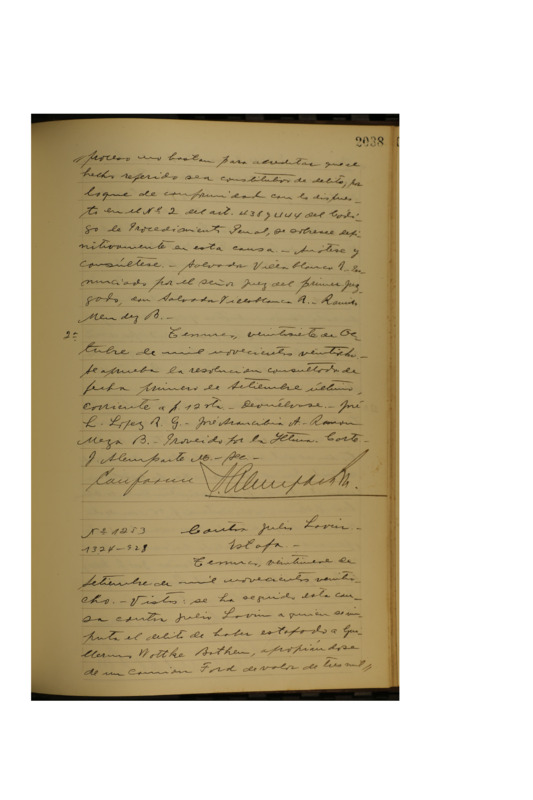 2038
proceso no bastan para acreditar que el
hecho referido sea constitutivo de delito, por
lo que de conformidad con lo dispues-
to en el Nº 2 del art. 438 y 444 del Códi-
go de Procedimiento Penal, se sobresee defi-
nitivamente en esta causa.- Anótese y
consúltese.- Salvador Villablanca R.- Pro-
nunciado por el señor juez del primer juz-
gado, don Salvador Villablanca R.- Ramón
Mendez B.-
2ª Temuco, veintisiete de Oc-
tubre de mil novecientos veintiocho.-
Se aprueba la resolución consultada de
fecha primero de Setiembre último,
corriente a f 12 vta.- Devuélvase.- José
L. Lopez R. G.- José Arancibia A.- Ramon
Meza B.- Proveido por la Iltma. Corte.-
J. Alemparte M.- Sec.-
Conforme
Nº 1253 Contra Julio Lavin.-
1324-928 Estafa.-
Temuco, veintinueve de
Setiembre de mil novecientos veintio-
cho.- Vistos: se ha seguido esta cau-
sa contra Julio Lavin a quien se im-
puta el delito de haber estafado a Gui-
llermo Wottke Bothen, apropiándose
de un camión Ford de valor de tres mil